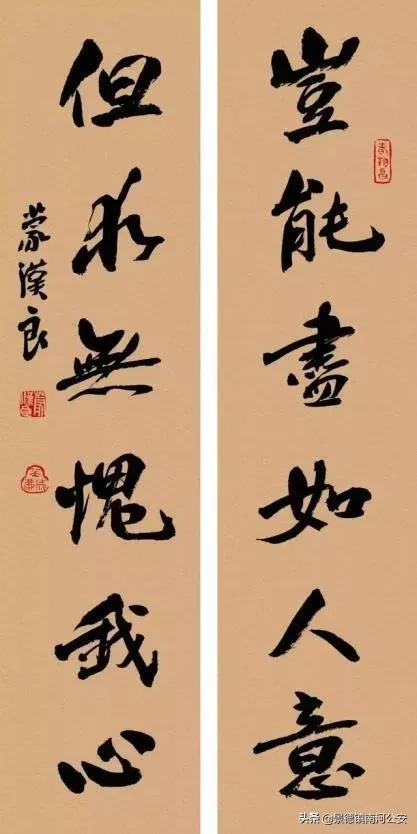 豈能盡如人意
但求無愧我心
蒙漢良
头条 @景德镇南河公安